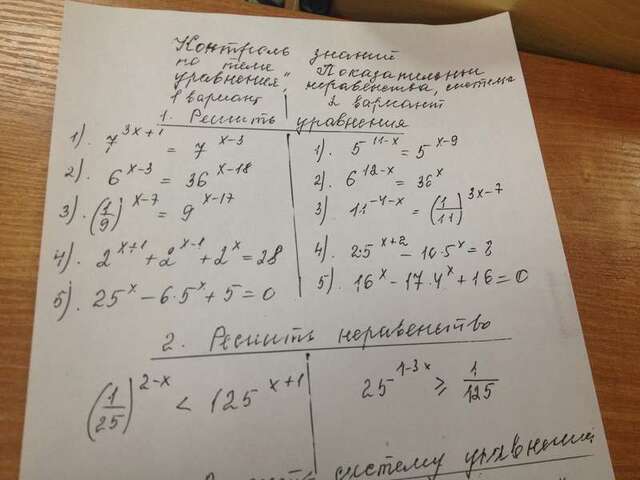 Контроль знаний
по теме "Показательные
уравнения, неравенства, система
1 вариант 2 вариант
1. Решить уравнения
1). 7^(3x+1) = 7^(x-3)
1). 5^(11-x) = 5^(x-9)
2). 6^(x-3) = 36^(x-18)
2). 6^(12-x) = 36^x
3). (1/9)^(x-7) = 9^(x-17)
3). 11^(-4-x) = (1/11)^(3x-7)
4). 2^(x+1) + 2^(x-1) + 2^x = 28
4). 2·5^(x+2) - 10·5^x = 8
5). 25^x - 6·5^x + 5 = 0
5). 16^x - 17·4^x + 16 = 0
2. Решить неравенство
(1/25)^(2-x) < 125^(x+1)
25^(1-3x) ≥ 1/125
систему уравнений